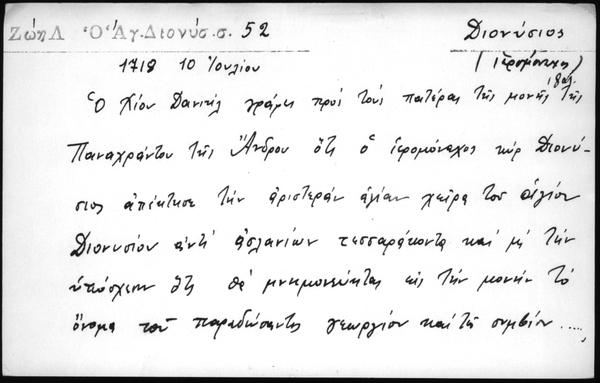 Ζώη Λ Ὁ Ἅγ. Διονύσ. σ. 52 Διονύσιος
1718 10 Ἰουλίου (ἱερομόναχος)
Ὁ Χίου Δανιὴλ γράφει πρὸς τοὺς πατέρας τῆς μονῆς τῆς
Παναχράντου τῆς Ἄνδρου ὅτι ὁ ἱερομόναχος κὺρ Διονύ-
σιος ἀπέκτησε τὴν ἀριστερὰν ἁγίαν χεῖρα τοῦ ἁγίου
Διονυσίου ἀντὶ ἀσλανίων τεσσαράκοντα καὶ μὲ τὴν
ὑπόσχεσιν ὅτι θὰ μνημονεύηται εἰς τὴν μονὴν τὸ
ὄνομα τοῦ παραδώσαντος γεωργίου καὶ τῆς συμβίου .....,